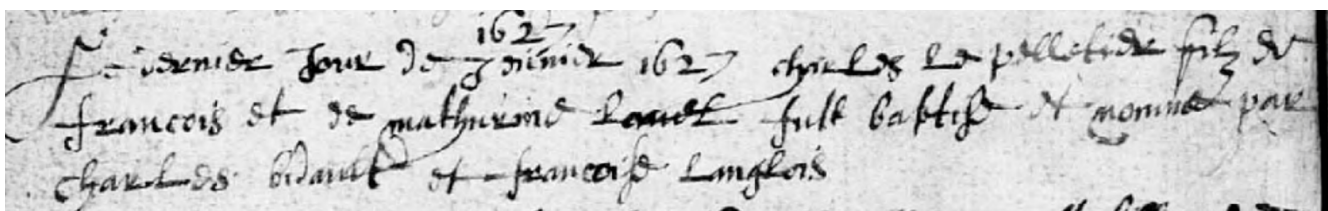 1627
Le dernier Jour de Jenvier 1627 charles Le pelletier filz de
francois et de mathurine fust baptise et nomme par
charles bidault et francoise Langlois